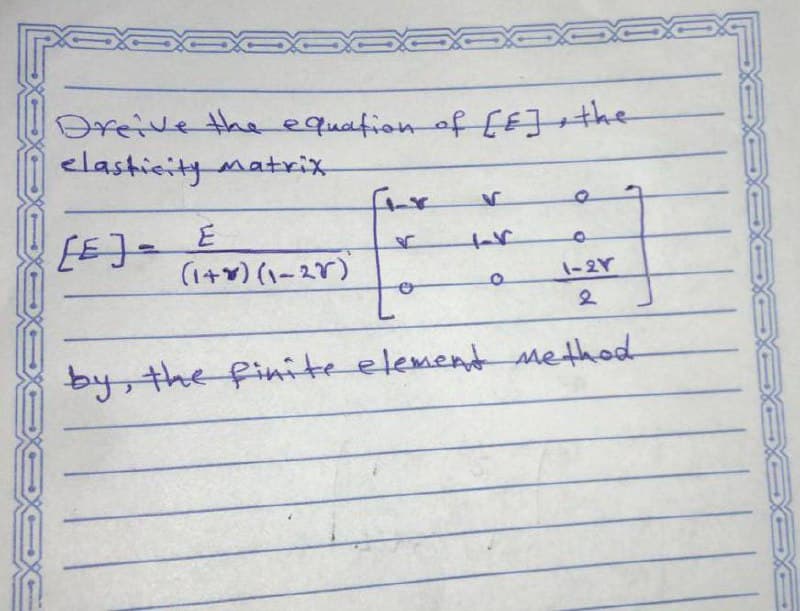 Dreive the equation of [E], the
elasticity matrix
[E] = E / (1+ν)(1-2ν) [1-ν ν 0
ν 1-ν 0
0 0 1-2ν / 2]
by, the finite element method